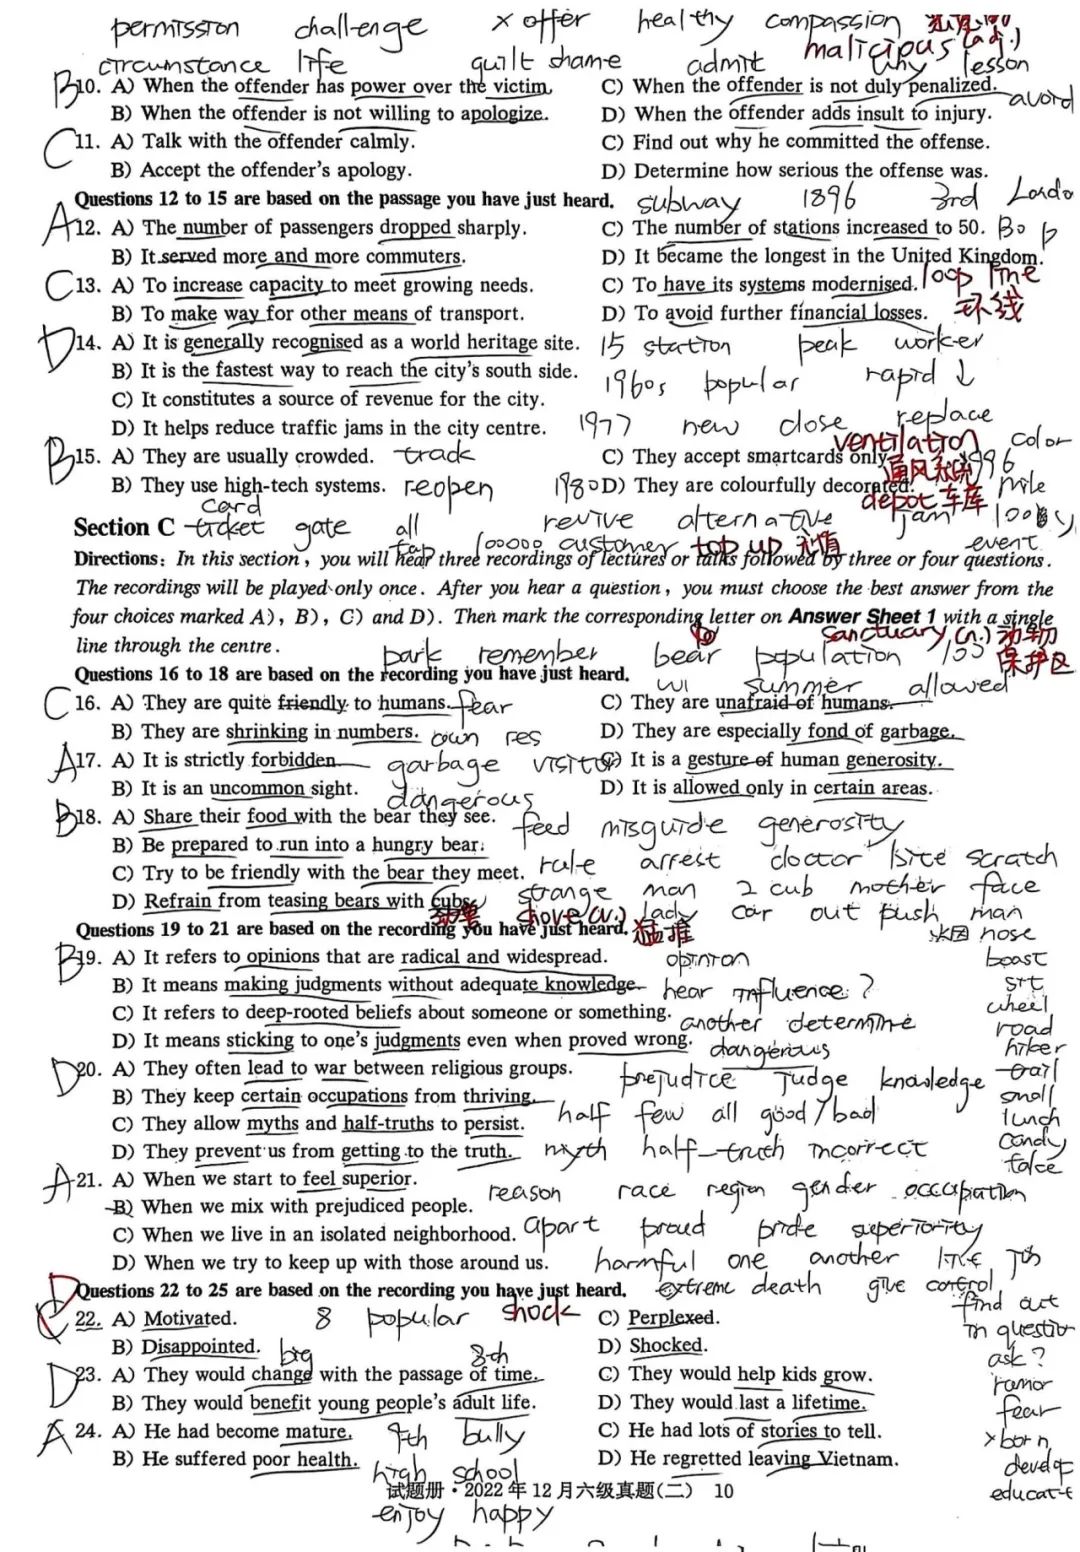 permission challenge x offer healthy compassion
malicious (adj.)
circumstance life guilt shame admit why lesson
B 10. A) When the offender has power over the victim. C) When the offender is not duly penalized. avoid
B) When the offender is not willing to apologize. D) When the offender adds insult to injury.
C 11. A) Talk with the offender calmly. C) Find out why he committed the offense.
B) Accept the offender's apology. D) Determine how serious the offense was.
Questions 12 to 15 are based on the passage you have just heard. subway 1896 3rd Londo
A 12. A) The number of passengers dropped sharply. C) The number of stations increased to 50.
B) It served more and more commuters. D) It became the longest in the United Kingdom.
C 13. A) To increase capacity to meet growing needs. C) To have its systems modernised. loop line
B) To make way for other means of transport. D) To avoid further financial losses. 环线
D 14. A) It is generally recognised as a world heritage site. 15 station peak worker
B) It is the fastest way to reach the city's south side. 1960s popular rapid ↓
C) It constitutes a source of revenue for the city.
D) It helps reduce traffic jams in the city centre. 1977 new close replace
ventilation color
B 15. A) They are usually crowded. track C) They accept smartcards only. 通风系统 1996
B) They use high-tech systems. reopen 1980 D) They are colourfully decorated. depot 车库 mile
card
Section C ticket gate all revive alternative jam 100 y
tap 100000 customer top up 充值 event
Directions: In this section, you will hear three recordings of lectures or talks followed by three or four questions.
The recordings will be played only once. After you hear a question, you must choose the best answer from the
four choices marked A), B), C) and D). Then mark the corresponding letter on Answer Sheet 1 with a single
line through the centre. sanctuary (n.) 动物保护区
park remember bear population 100
Questions 16 to 18 are based on the recording you have just heard. summer allowed
C 16. A) They are quite friendly to humans. fear C) They are unafraid of humans.
B) They are shrinking in numbers. own res D) They are especially fond of garbage.
A 17. A) It is strictly forbidden. garbage visitor C) It is a gesture of human generosity.
B) It is an uncommon sight. dangerous D) It is allowed only in certain areas.
B 18. A) Share their food with the bear they see. feed misguide generosity
B) Be prepared to run into a hungry bear.
C) Try to be friendly with the bear they meet. rule arrest doctor bite scratch
D) Refrain from teasing bears with cubs. strange man 2 cub mother face
shove (v.) 猛推 lady car out push man
Questions 19 to 21 are based on the recording you have just heard. nose
B 19. A) It refers to opinions that are radical and widespread. opinion boast
B) It means making judgments without adequate knowledge. hear influence? sit
C) It refers to deep-rooted beliefs about someone or something. another determine wheel
D) It means sticking to one's judgments even when proved wrong. dangerous road
hiker
D 20. A) They often lead to war between religious groups. prejudice judge knowledge trail
B) They keep certain occupations from thriving. small
C) They allow myths and half-truths to persist. half few all good/bad lunch
D) They prevent us from getting to the truth. myth half-truth incorrect candy
A 21. A) When we start to feel superior. reason race region gender occupation
B) When we mix with prejudiced people.
C) When we live in an isolated neighborhood. apart proud pride superiority
D) When we try to keep up with those around us. harmful one another
D Questions 22 to 25 are based on the recording you have just heard. extreme death give control
find out
C 22. A) Motivated. 8 popular shock C) Perplexed. in question
B) Disappointed. big 8th D) Shocked. ask?
D 23. A) They would change with the passage of time. C) They would help kids grow.
B) They would benefit young people's adult life. D) They would last a lifetime. fear
A 24. A) He had become mature. 9th bully C) He had lots of stories to tell. x born
B) He suffered poor health. high school D) He regretted leaving Vietnam.
试题册·2022年12月六级真题(二) 10
enjoy happy